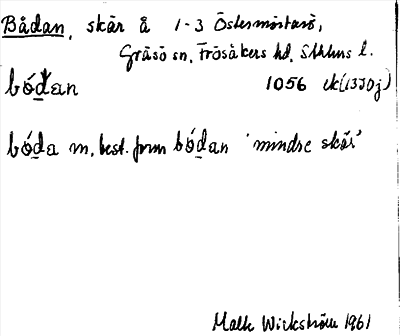 Bådan, skär å 1-3 Östermörtarö,
Gräsö sn, Frösåkers hd, Sthlms l.
bódan 1056 ek(13J0j)
bóda m, best. form bódan 'mindre skär'
Malte Wickström 1961